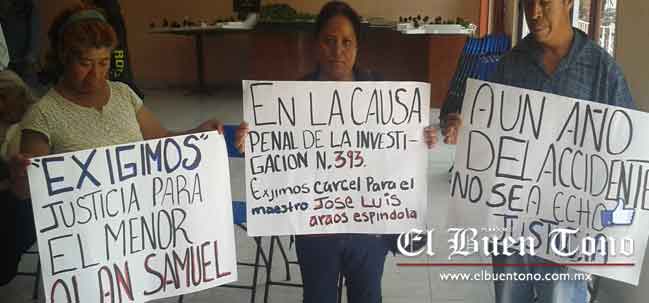 "EXIGIMOS"
JUSTICIA PARA
EL MENOR
ALAN SAMUEL
EN LA CAUSA
PENAL DE LA INVESTI-
GACION N.393.
Exjimos carcel Para el
maestro JOSE LUIS
araos espindola
A UN AÑO
DEL ACCIDENTE
NO SE A ECHO
El Buen Tono
www.elbuentono.com.mx